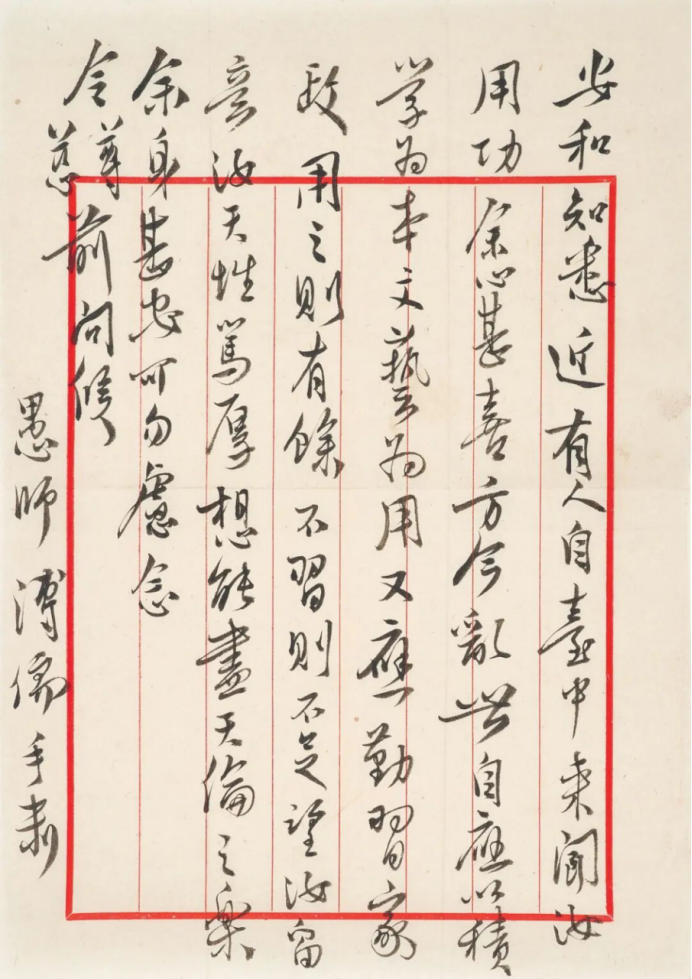 安和知悉近有人自臺中來聞汝
用功余心甚喜方今亂世自應以積
學為本文藝為用又應勤習家
政用之則有餘不習則不足望汝留
意汝天性篤厚想能盡天倫之樂
余身甚安可勿慮念
令尊慈前問候
愚師溥儒手肅